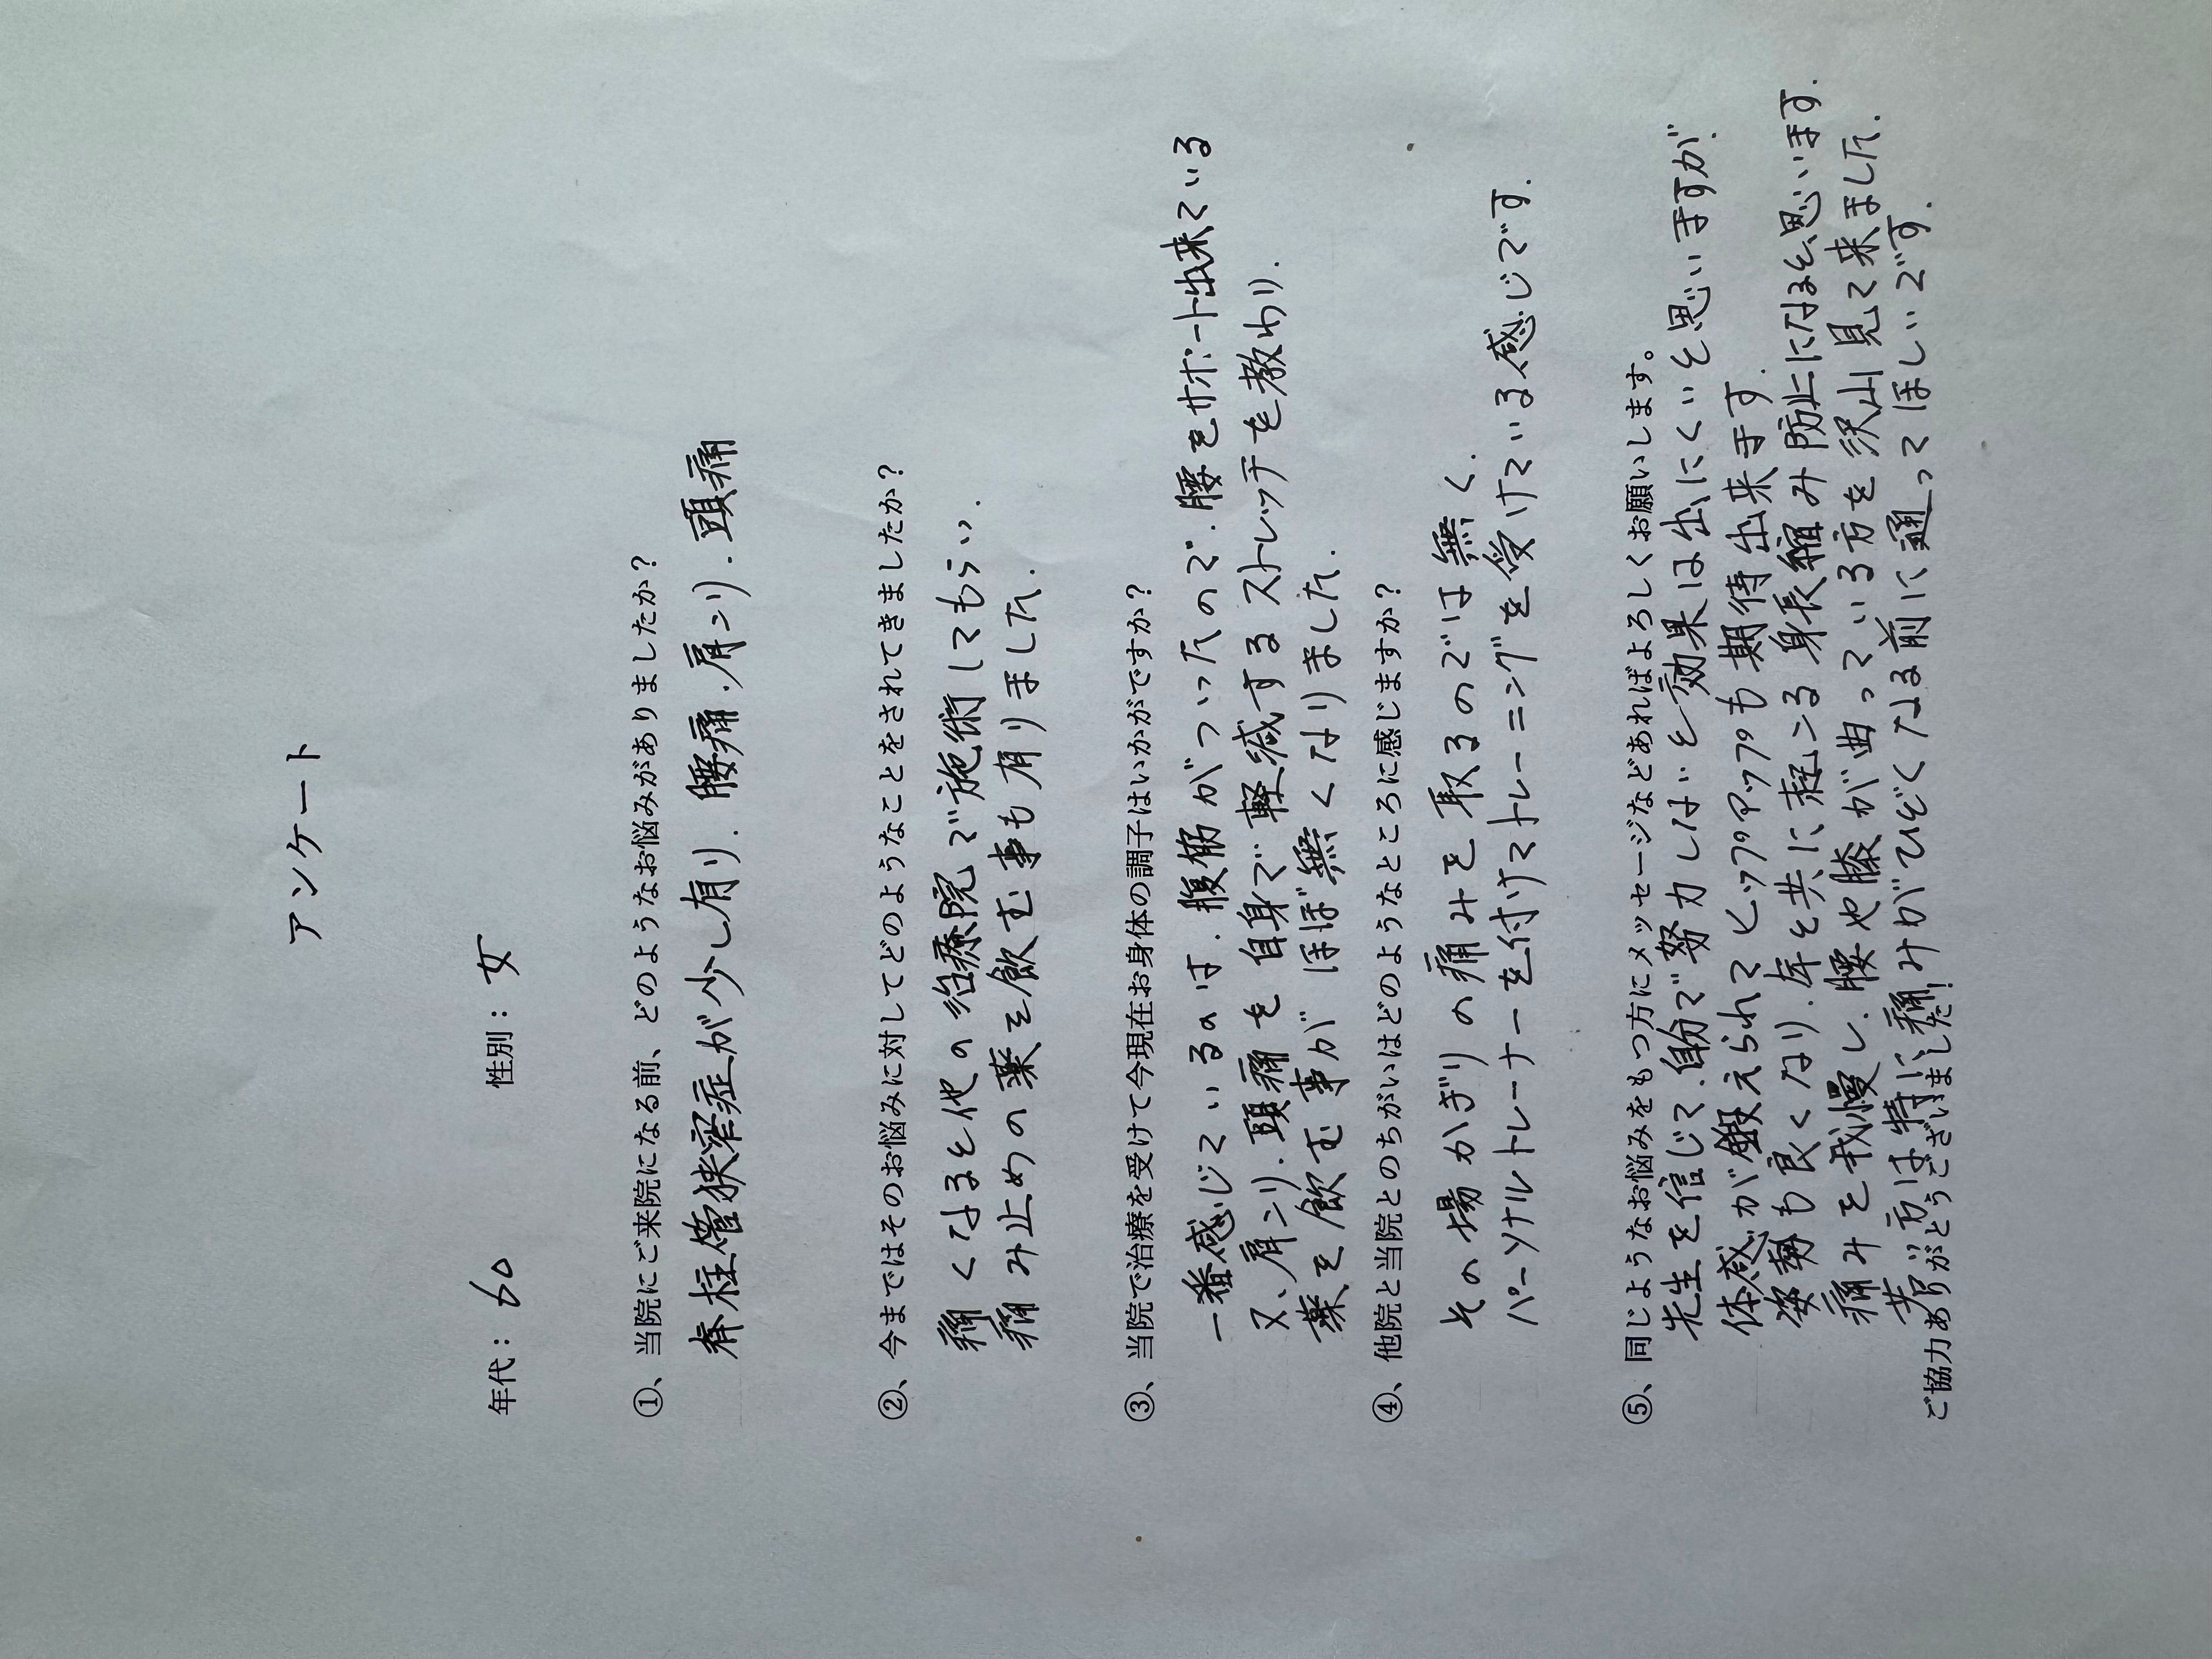 アンケート
年代：60 性別：女
①、当院にご来院になる前、どのようなお悩みがありましたか？
脊柱管狭窄症が少し有り、腰痛、肩コリ、頭痛
②、今まではそのお悩みに対してどのようなことをされてきましたか？
痛くなると他の治療院で施術してもらい、
痛み止めの薬を飲む事も有りました。
③、当院で治療を受けて今現在お身体の調子はいかがですか？
一番感じているのは、腹筋がついたので、腰をサポート出来ている
又、肩コリ、頭痛を自身で軽減するストレッチを教わり、
薬を飲む事がほぼ無くなりました。
④、他院と当院とのちがいはどのようなところに感じますか？
その場かぎりの痛みを取るのでは無く、
パーソナルトレーナーを付けてトレーニングを受けている感じです。
⑤、同じようなお悩みをもつ方にメッセージなどあればよろしくお願いします。
先生を信じて、自分で努力しないと効果は出にくいと思いますが、
体感が鍛えられてヒップアップも期待出来ます。
姿勢も良くなり、年と共に起こる身長縮み防止になると思います。
痛みを我慢し、腰や膝が曲っている方を沢山見て来ました。
若い方は特に痛みがひどくなる前に通ってほしいです。
ご協力ありがとうございました！